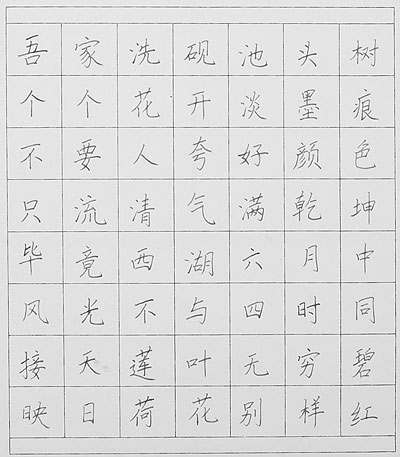 吾家洗砚池头树
个个花开淡墨痕
不要人夸好颜色
只流清气满乾坤
毕竟西湖六月中
风光不与四时同
接天莲叶无穷碧
映日荷花别样红